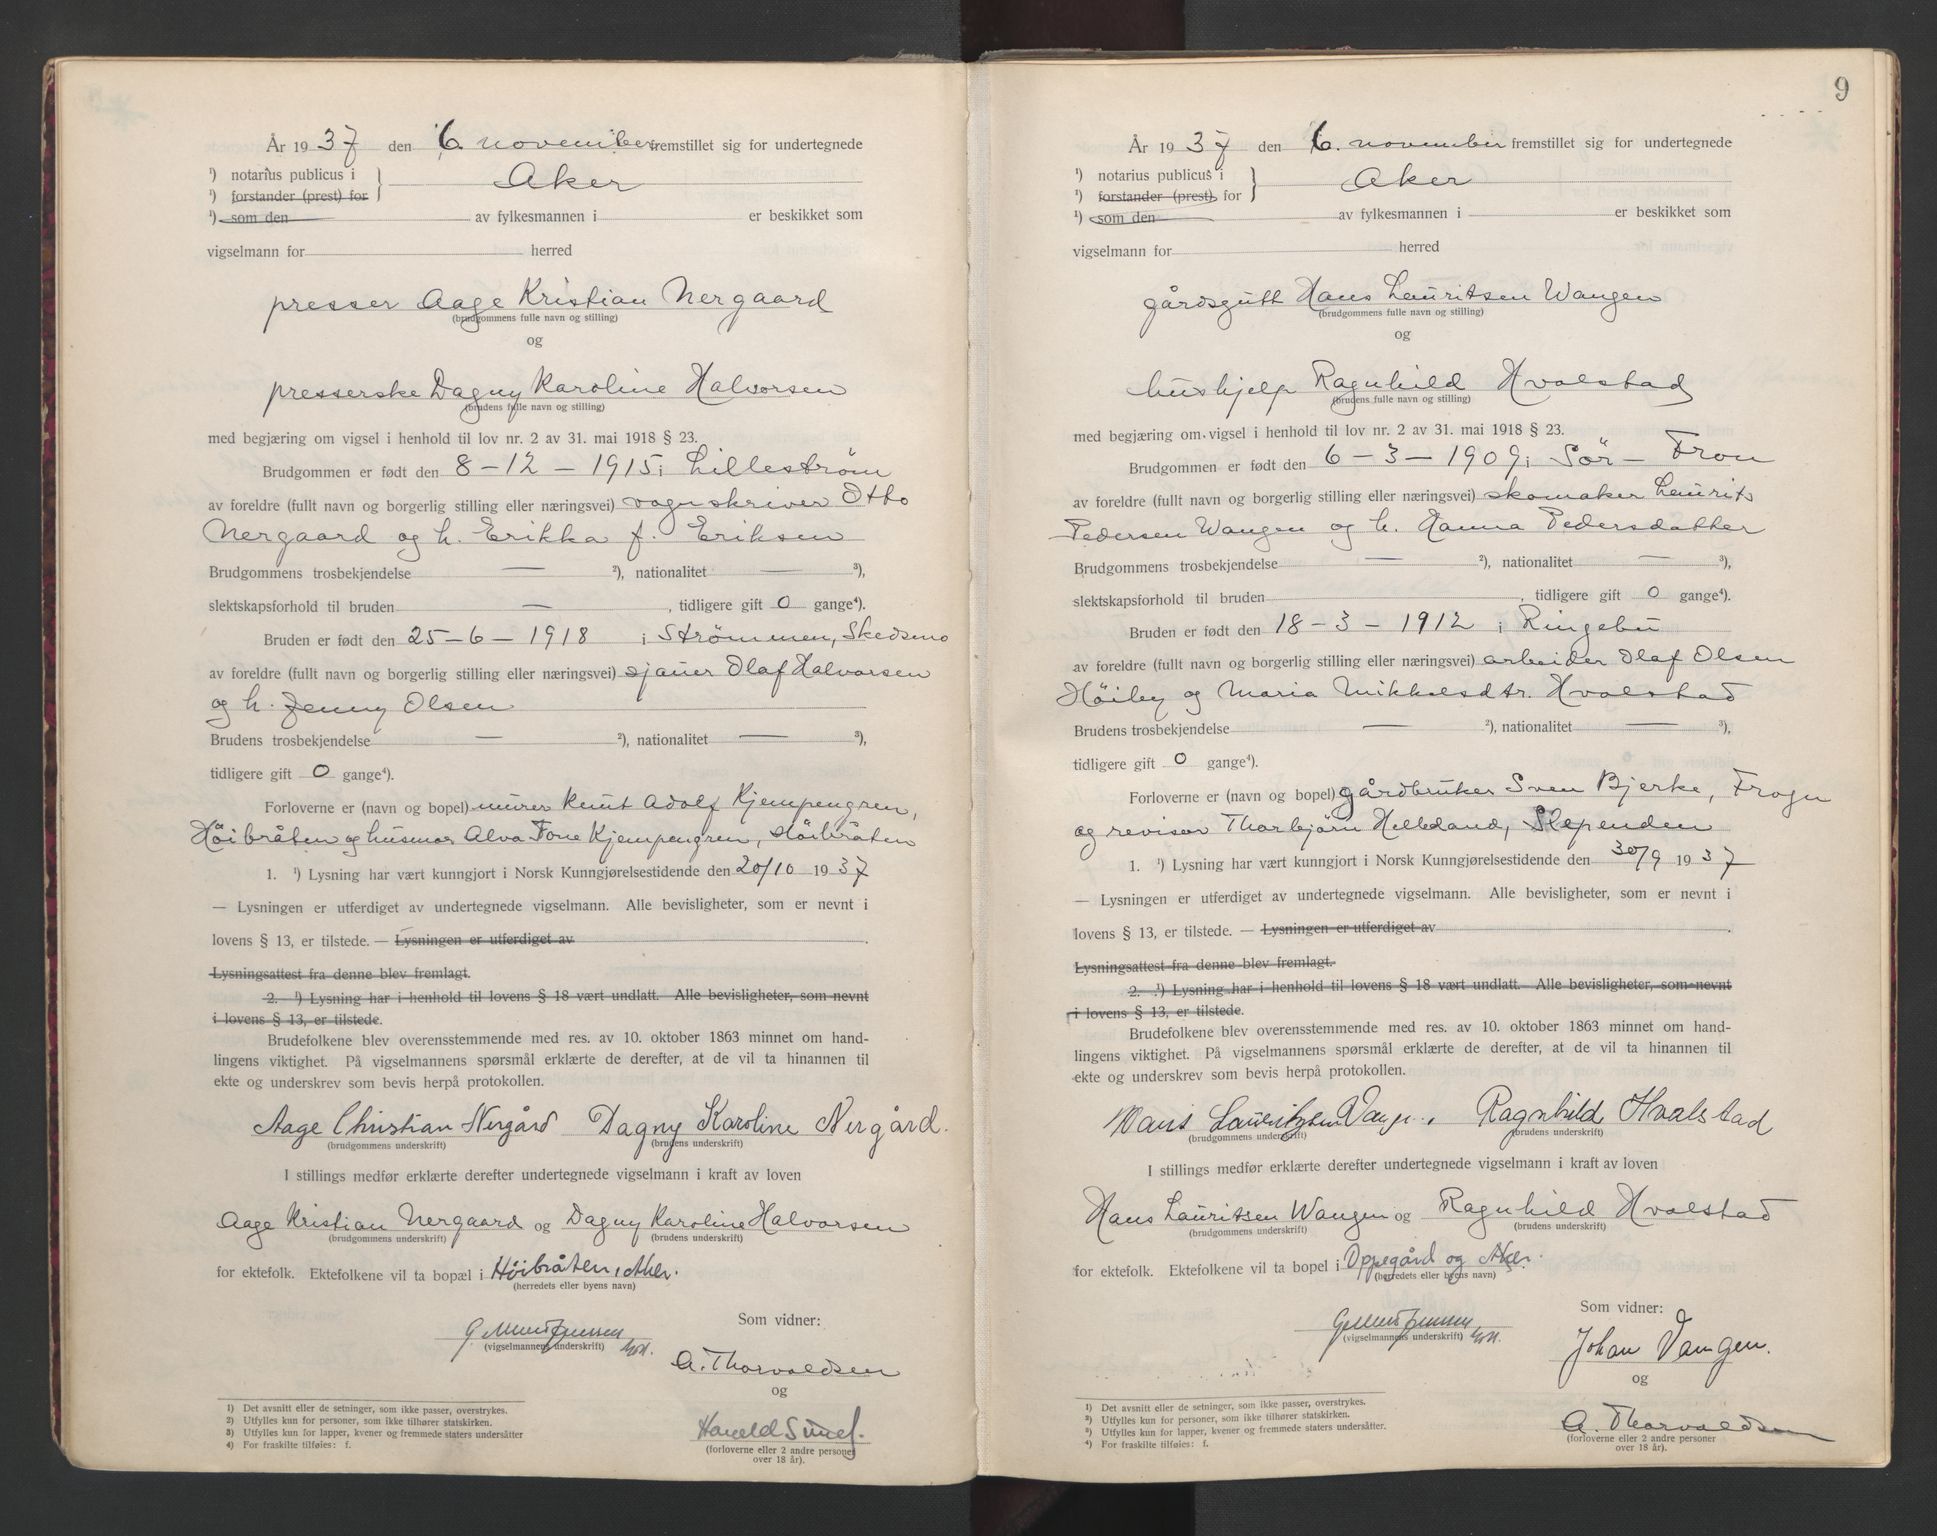 År 1937 den 6. november fremstillet sig for undertegnede
¹) notarius publicus i
Aker
¹) forstander (prest) for
¹) som den av fylkesmannen i er beskikket som
vigselmann for herred
presser Aage Kristian Nergaard
(brudgommens fulle navn og stilling)
og
presserske Dagny Karoline Halvorsen
(brudens fulle navn og stilling)
med begjæring om vigsel i henhold til lov nr. 2 av 31. mai 1918 § 23.
Brudgommen er født den 8-12-1915 i Lilleström
av foreldre (fullt navn og borgerlig stilling eller næringsvei) vognskriver Otto
Nergaard og h. Erikka f. Eriksen
Brudgommens trosbekjendelse — ²), nationalitet — ³),
slektskapsforhold til bruden — , tidligere gift 0 gange⁴).
Bruden er født den 25-6-1918 i Strömmen, Skedsmo
av foreldre (fullt navn og borgerlig stilling eller næringsvei) sjauer Olaf Halvorsen
og h. Jenny Olsen
Brudens trosbekjendelse — ²), nationalitet — ³),
tidligere gift 0 gange⁴).
Forloverne er (navn og bopel) murer Knut Adolf Kjempengren,
Höibråten og husmor Alva Tone Kjempengren, Höibråten
1. ¹) Lysning har vært kunngjort i Norsk Kunngjørelsestidende den 20/10 1937
— Lysningen er utferdiget av undertegnede vigselmann. Alle bevisligheter, som er nevnt i
lovens § 13, er tilstede. — Lysningen er utferdiget av .
Lysningsattest fra denne blev fremlagt.
2. ¹) Lysning har i henhold til lovens § 18 vært undlatt. Alle bevisligheter, som nevnt
i lovens § 13, er tilstede.
Brudefolkene blev overensstemmende med res. av 10. oktober 1863 minnet om hand-
lingens viktighet. På vigselmannens spørsmål erklærte de derefter, at de vil ta hinannen til
ekte og underskrev som bevis herpå protokollen.
Aage Christian Nergård Dagny Karoline Nergård.
(brudgommens underskrift) (brudens underskrift)
I stillings medfør erklærte derefter undertegnede vigselmann i kraft av loven
Aage Kristian Nergaard og Dagny Karoline Halvorsen
(brudgommens underskrift) (brudens underskrift)
for ektefolk. Ektefolkene vil ta bopæl i Höibråten, Aker.
(herredets eller byens navn)
Som vidner:
(vigselmannens underskrift)
A. Thorvaldsen
og
Harald
(forloverne eller 2 andre personer
over 18 år).
1) Det avsnitt eller de setninger, som ikke passer, overstrykes.
2) Utfylles kun for personer, som ikke tilhører statskirken.
3) Utfylles kun for lapper, kvener og fremmede staters undersåtter
4) For fraskilte tilføies: f.
9
År 1937 den 6. november fremstillet sig for undertegnede
¹) notarius publicus i
Aker
¹) forstander (prest) for
¹) som den av fylkesmannen i er beskikket som
vigselmann for herred
gårdsgutt Hans Lauritsen Wangen
(brudgommens fulle navn og stilling)
og
hushjelp Ragnhild Hvalstad
(brudens fulle navn og stilling)
med begjæring om vigsel i henhold til lov nr. 2 av 31. mai 1918 § 23.
Brudgommen er født den 6-3-1909 i Sör-Fron
av foreldre (fullt navn og borgerlig stilling eller næringsvei) skomaker Laurits
Pedersen Wangen og h. Hanna Pedersdatter
Brudgommens trosbekjendelse — ²), nationalitet — ³),
slektskapsforhold til bruden , tidligere gift 0 gange⁴).
Bruden er født den 18-3-1912 i Ringebu
av foreldre (fullt navn og borgerlig stilling eller næringsvei) arbeider Olaf Olsen
Höiby og Maria Mikkelsdtr. Hvalstad
Brudens trosbekjendelse — ²), nationalitet — ³),
tidligere gift 0 gange⁴).
Forloverne er (navn og bopel) gårdbruker Sven Bjerke, Frogn
og revisor Thorbjörn Helleland, Slependen
1. ¹) Lysning har vært kunngjort i Norsk Kunngjørelsestidende den 30/9 1937
— Lysningen er utferdiget av undertegnede vigselmann. Alle bevisligheter, som er nevnt i
lovens § 13, er tilstede. — Lysningen er utferdiget av .
Lysningsattest fra denne blev fremlagt.
2. ¹) Lysning har i henhold til lovens § 18 vært undlatt. Alle bevisligheter, som nevnt
i lovens § 13, er tilstede.
Brudefolkene blev overensstemmende med res. av 10. oktober 1863 minnet om hand-
lingens viktighet. På vigselmannens spørsmål erklærte de derefter, at de vil ta hinannen til
ekte og underskrev som bevis herpå protokollen.
Hans Lauritsen Vangen. Ragnhild Hvalstad
(brudgommens underskrift) (brudens underskrift)
I stillings medfør erklærte derefter undertegnede vigselmann i kraft av loven
Hans Lauritsen Wangen og Ragnhild Hvalstad
(brudgommens underskrift) (brudens underskrift)
for ektefolk. Ektefolkene vil ta bopel i Oppegård og Aker.
(herredets eller byens navn)
Som vidner:
(vigselmannens underskrift)
Johan Vangen.
og
A. Thorvaldsen
(forloverne eller 2 andre personer
over 18 år).
1) Det avsnitt eller de setninger, som ikke passer, overstrykes.
2) Utfylles kun for personer, som ikke tilhører statskirken.
3) Utfylles kun for lapper, kvener og fremmede staters undersåtter.
4) For fraskilte tilføies: f.